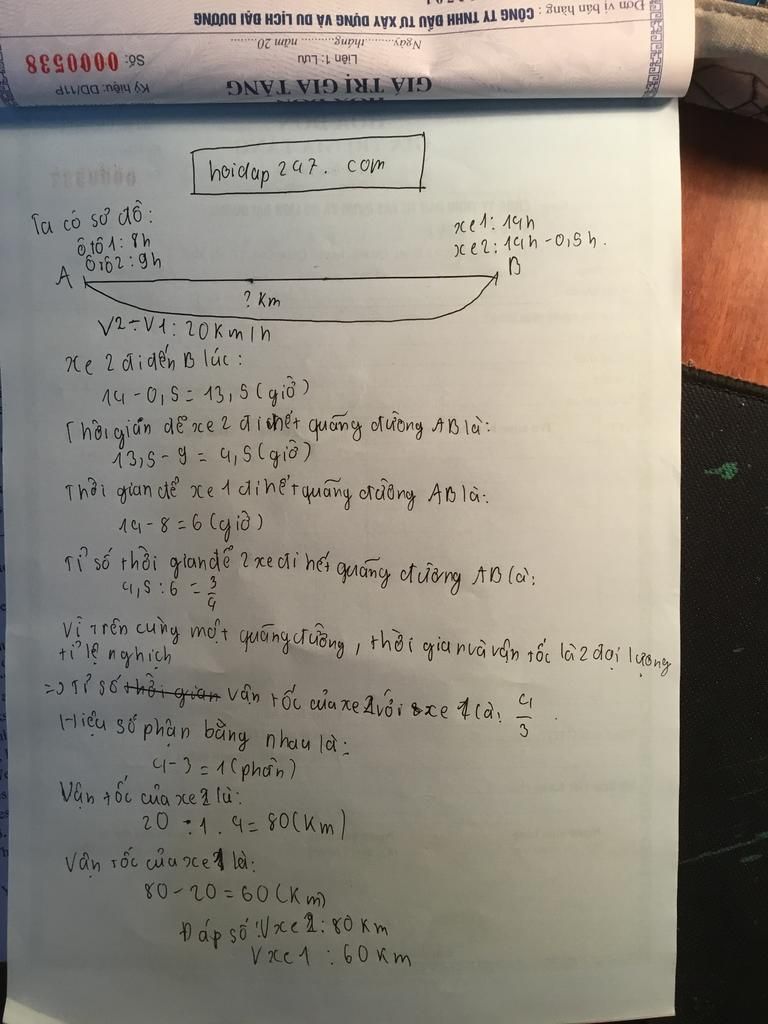 Đơn vị bán hàng : CÔNG TY TNHH ĐẦU TƯ XÂY DỰNG VÀ DU LỊCH ĐẠI DƯƠNG
Ngày.........tháng.........năm 20.........
Liên 1: Lưu
Số: 0000538
GIÁ TRỊ GIA TĂNG
Ký hiệu: DD/11P
hoidap247.com
Ta có sơ đồ:
ô tô 1: 8h
ô tô 2: 9h
xe1: 14h
xe2: 14h - 0,5h.
A
B
? Km
V2 - V1: 20Km/h
Xe 2 đi đến B lúc:
14 - 0,5 = 13,5 (giờ)
Thời gian để xe 2 đi hết quãng đường AB là:
13,5 - 9 = 4,5 (giờ)
Thời gian để xe 1 đi hết quãng đường AB là:
14 - 8 = 6 (giờ)
Tỉ số thời gian để 2 xe đi hết quãng đường AB là:
4,5 : 6 = 3/4
Vì trên cùng một quãng đường, thời gian và vận tốc là 2 đại lượng
tỉ lệ nghịch
=> Tỉ số thời gian vận tốc của xe 2 với xe 1 là: 4/3.
Hiệu số phận bằng nhau là:
4 - 3 = 1 (phần)
Vận tốc của xe 2 là:
20 : 1 . 4 = 80 (Km)
Vận tốc của xe 1 là:
80 - 20 = 60 (Km)
Đáp số: Vxe 2: 80 Km
Vxe 1 : 60 Km